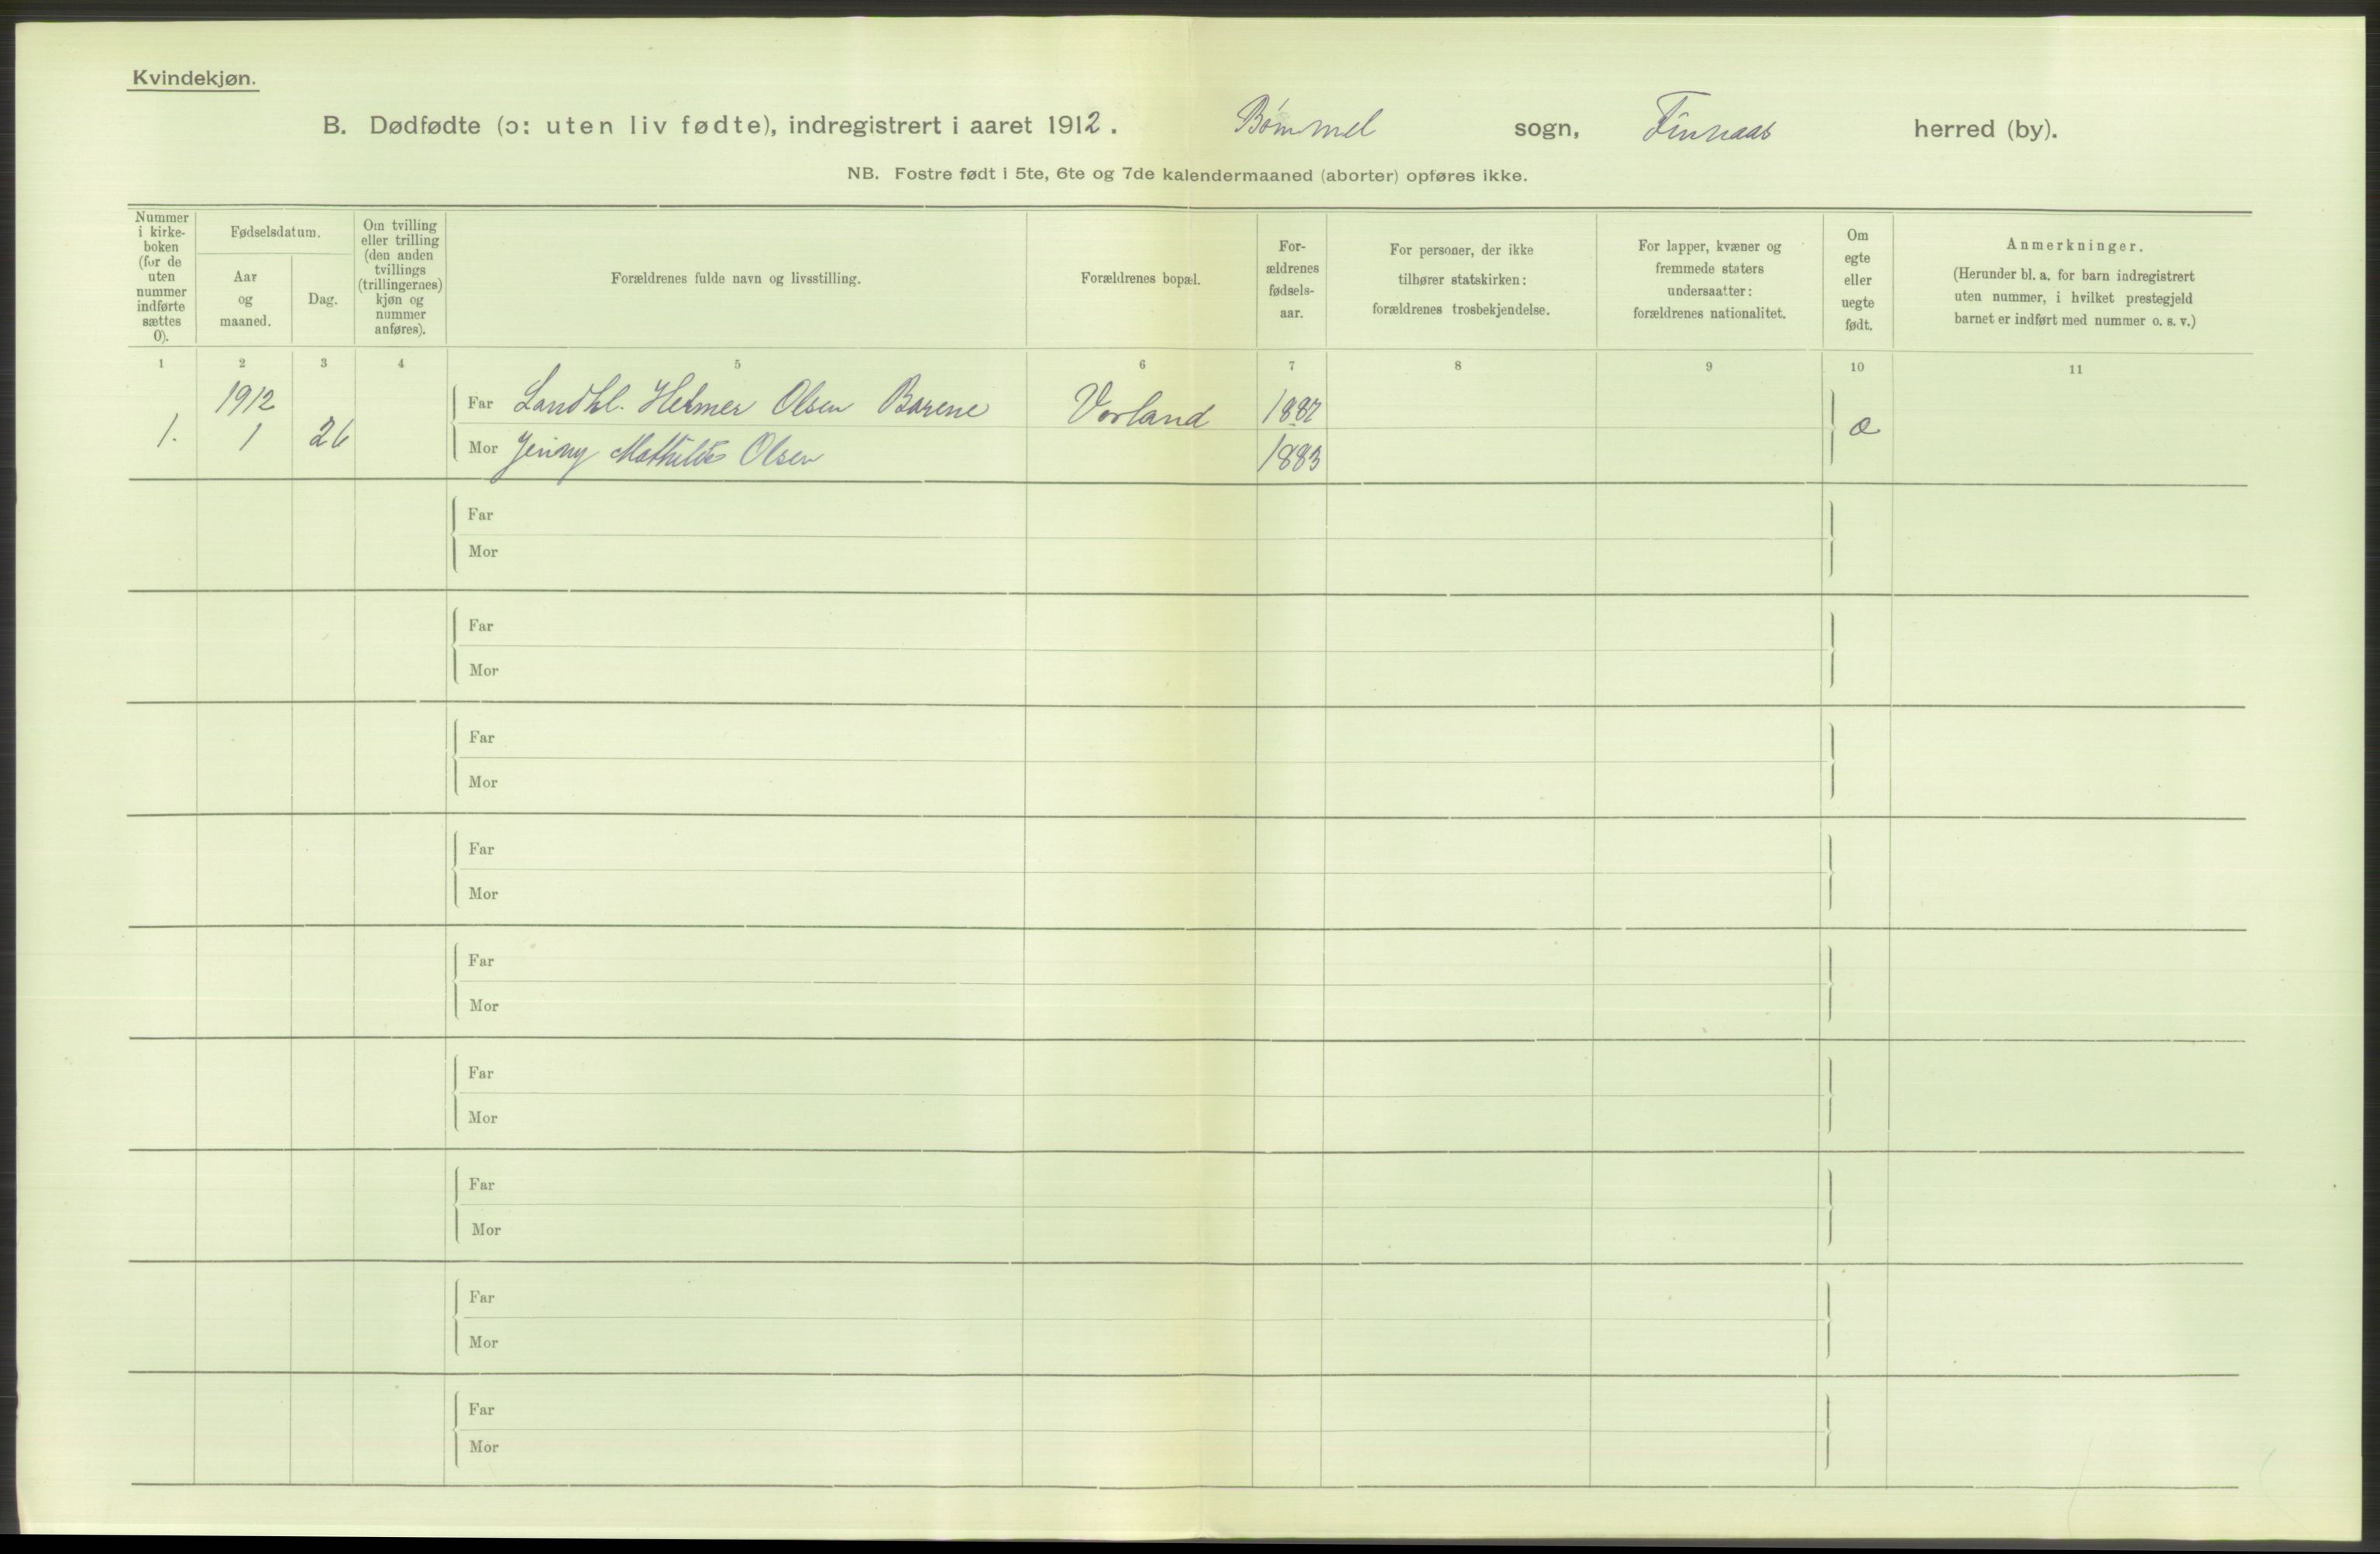 Kvindekjøn.
B. Dødfødte (ɔ: uten liv fødte), indregistrert i aaret 1912. Bømmel sogn, Finnaas herred (by).
NB. Fostre født i 5te, 6te og 7de kalendermaaned (aborter) opføres ikke.
Nummer
i kirke-
boken
(for de
uten
nummer
indførte
sættes
0).
Fødselsdatum.
Aar
og
maaned.
Dag.
Om tvilling
eller trilling
(den anden
tvillings
(trillingernes)
kjøn og
nummer
anføres).
Forældrenes fulde navn og livsstilling.
Forældrenes bopæl.
For-
ældrenes
fødsels-
aar.
For personer, der ikke
tilhører statskirken:
forældrenes trosbekjendelse.
For lapper, kvæner og
fremmede staters
undersaatter:
forældrenes nationalitet.
Om
egte
eller
uegte
født.
Anmerkninger.
(Herunder bl. a. for barn indregistrert
uten nummer, i hvilket prestegjeld
barnet er indført med nummer o. s. v.)
1 2 3 4 5 6 7 8 9 10 11
1912
Far Landhl. Helmer Olsen Barene Vorland 1882
1. 1 26 æ
Mor Jenny Mathilde Olsen 1883
Far
Mor
Far
Mor
Far
Mor
Far
Mor
Far
Mor
Far
Mor
Far
Mor
Far
Mor
Far
Mor